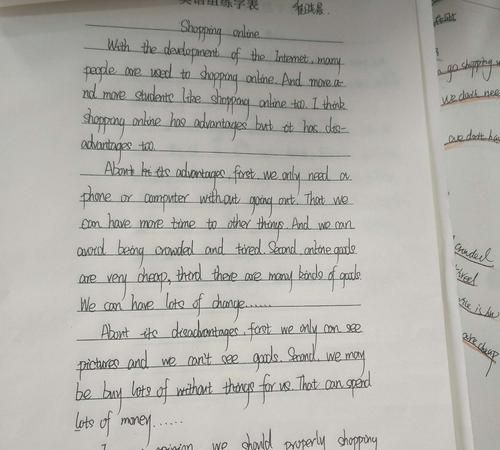 英语组练字表
Shopping online
With the development of the Internet, many
people are used to shopping online. And more a-
nd more students like shopping online too. I think
shopping online has advantages but it has dis-
advantages too.
About its advantages, first, we only need a
phone or computer without going out. That we
can have more time to other things. And we can
avoid being crowded and tired. Second, online goods
are very cheap, third there are many kinds of goods.
We can have lots of change......
About its disadvantages, first we only can see
pictures and we can't see goods. Second, we may
be buy lots of without things for us. That can spend
lots of money......
opinion we should properly shopping
go shopping
we don't nee
we don't ha
crowded
tired
are cheap